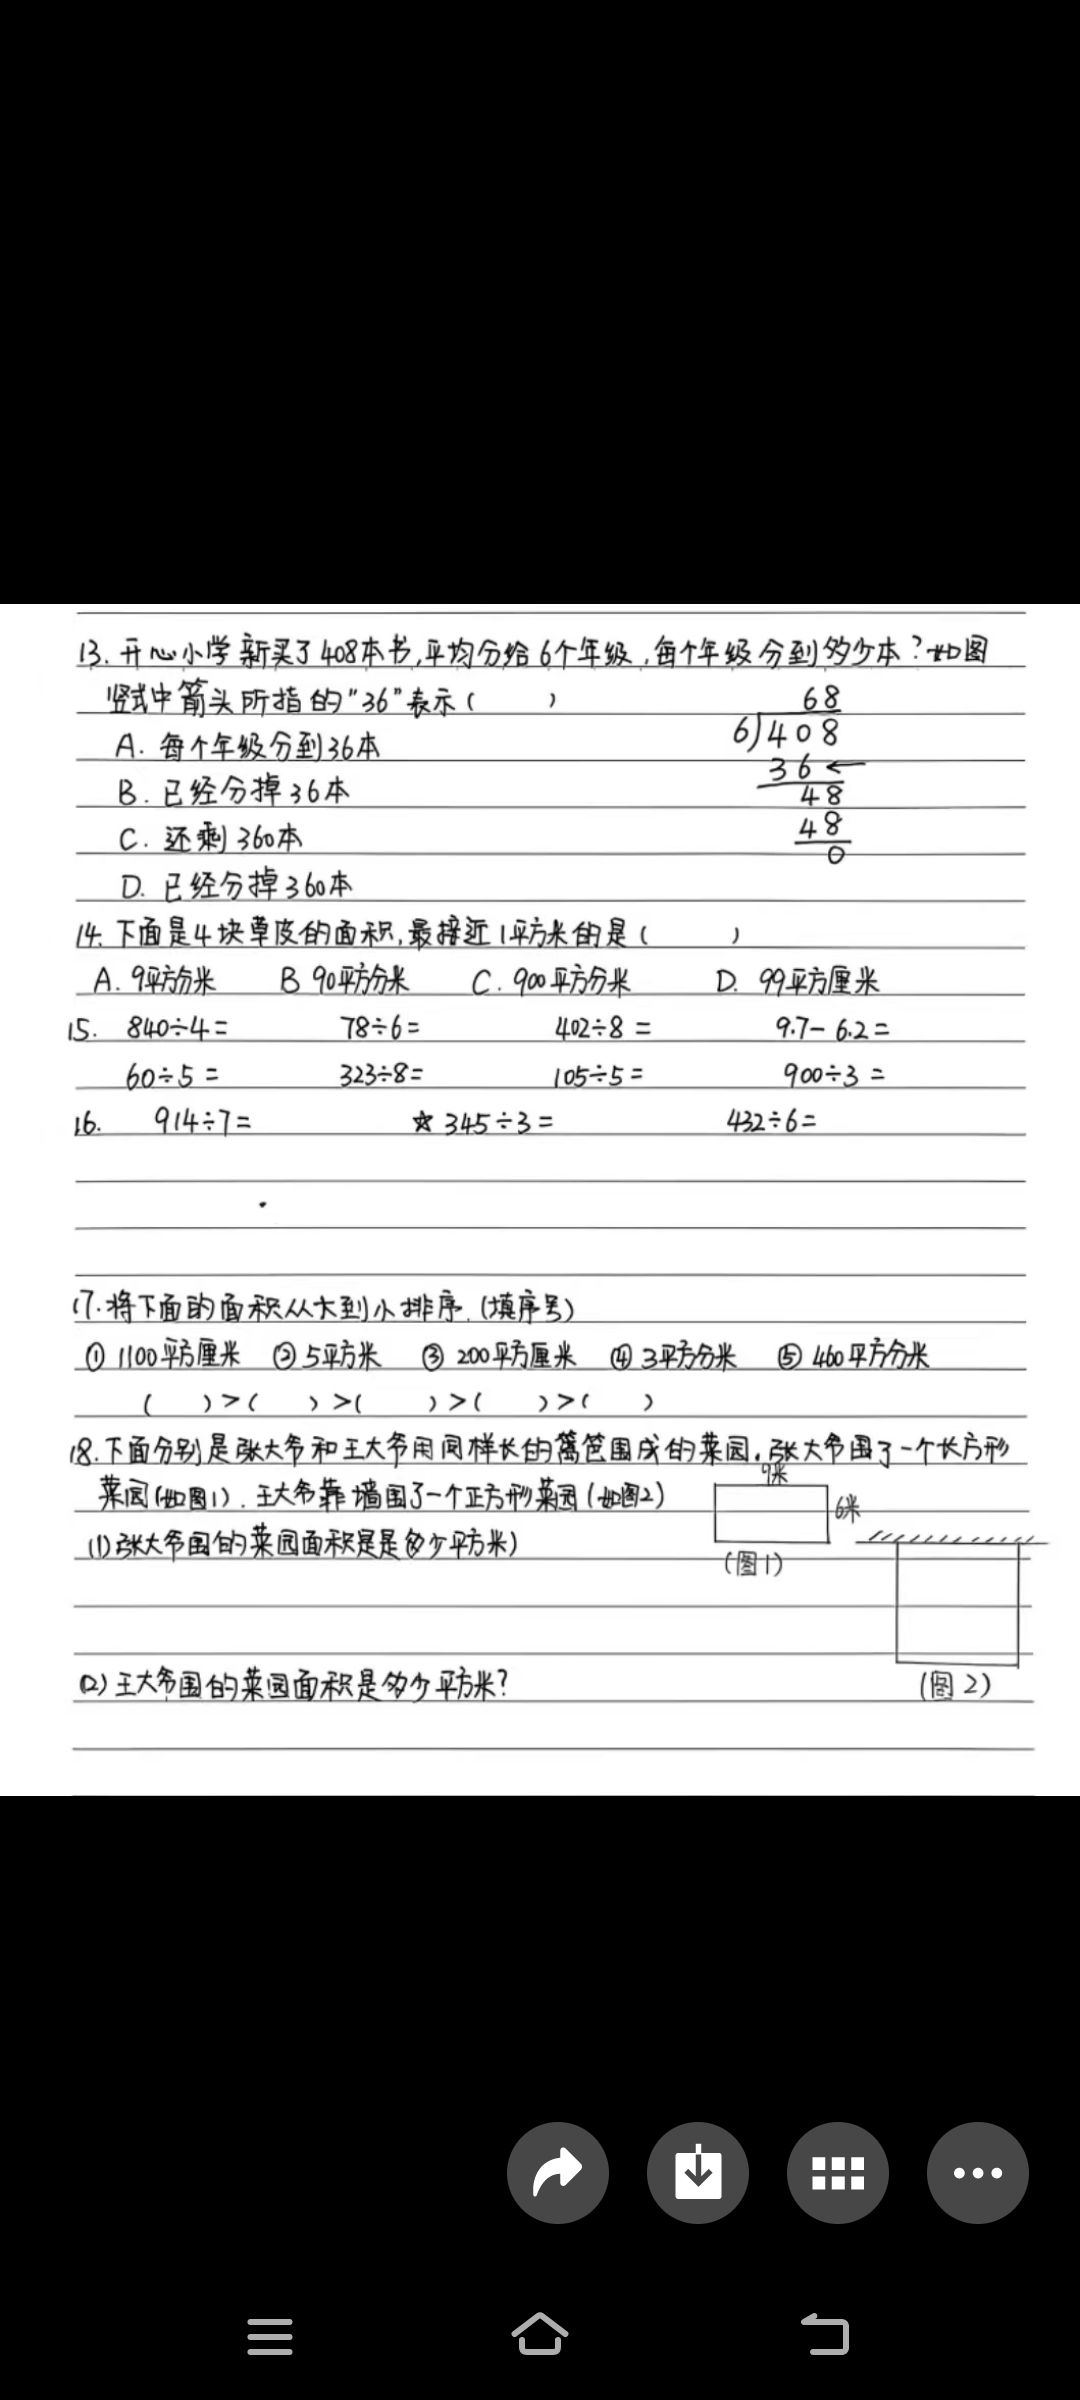 13. 开心小学新买了408本书,平均分给6个年级,每个年级分到多少本?如图
竖式中箭头所指的"36"表示( )
68
6)408
36←
48
48
0
A. 每个年级分到36本
B. 已经分掉36本
C. 还剩360本
D. 已经分掉360本
14. 下面是4块草皮的面积,最接近1平方米的是( )
A. 9平方分米 B 90平方分米 C. 900平方分米 D. 99平方厘米
15. 840÷4= 78÷6= 402÷8= 9.7-6.2=
60÷5= 323÷8= 105÷5= 900÷3=
16. 914÷7= ☆345÷3= 432÷6=
17. 将下面的面积从大到小排序.(填序号)
① 1100平方厘米 ② 5平方米 ③ 200平方厘米 ④ 3平方分米 ⑤ 460平方分米
( )>( )>( )>( )>( )
18. 下面分别是张大爷和王大爷用同样长的篱笆围成的菜园.张大爷围了一个长方形
菜园(如图1).王大爷靠墙围了一个正方形菜园(如图2)
9米
6米
(图1)
(1)张大爷围的菜园面积是是多少平方米)
(2)王大爷围的菜园面积是多少平方米?
(图2)